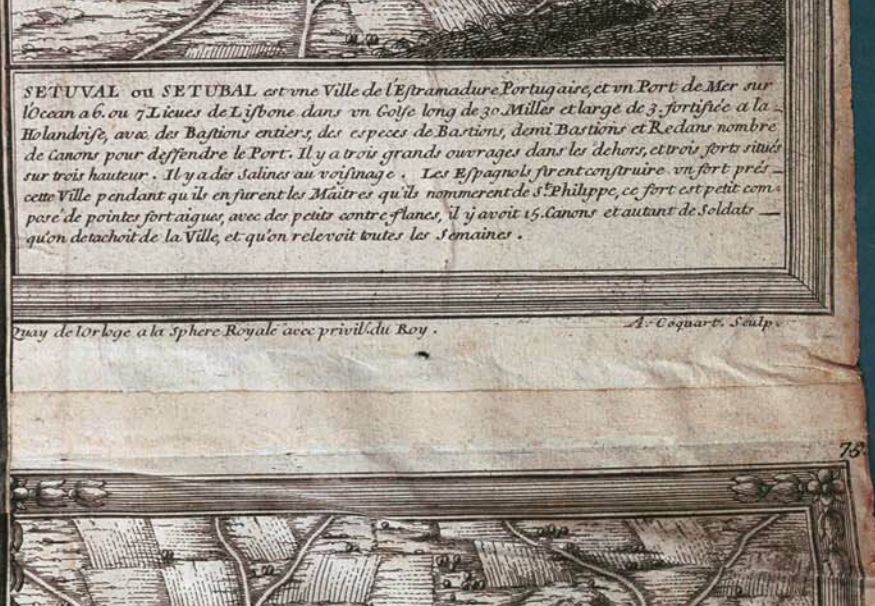 SETUVAL ou SETUBAL est vne Ville de l'Estramadure Portugaise, et vn Port de Mer sur
l'Ocean a 6. ou 7 Lieues de Lisbone dans vn Golfe long de 30 Milles et large de 3. fortifiée a la
Holandoise, avec des Bastions entiers, des especes de Bastions, demi Bastions et Redans nombre
de Canons pour deffendre le Port. Il y a trois grands ouvrages dans les dehors, et trois forts situés
sur trois hauteur. Il y a des Salines au voisinage. Les Espagnols firent construire vn fort prés
cette Ville pendant qu'ils en furent les Maitres qu'ils nommerent de St. Philippe, ce fort est petit com-
posé de pointes fort aigues, avec des petits contre-flancs, il y avoit 15. Canons et autant de Soldats
qu'on detachoit de la Ville, et qu'on relevoit toutes les Semaines.
Quay de l'orloge a la Sphere Royale avec privil. du Roy.
A. Coquart. Sculp.
75.